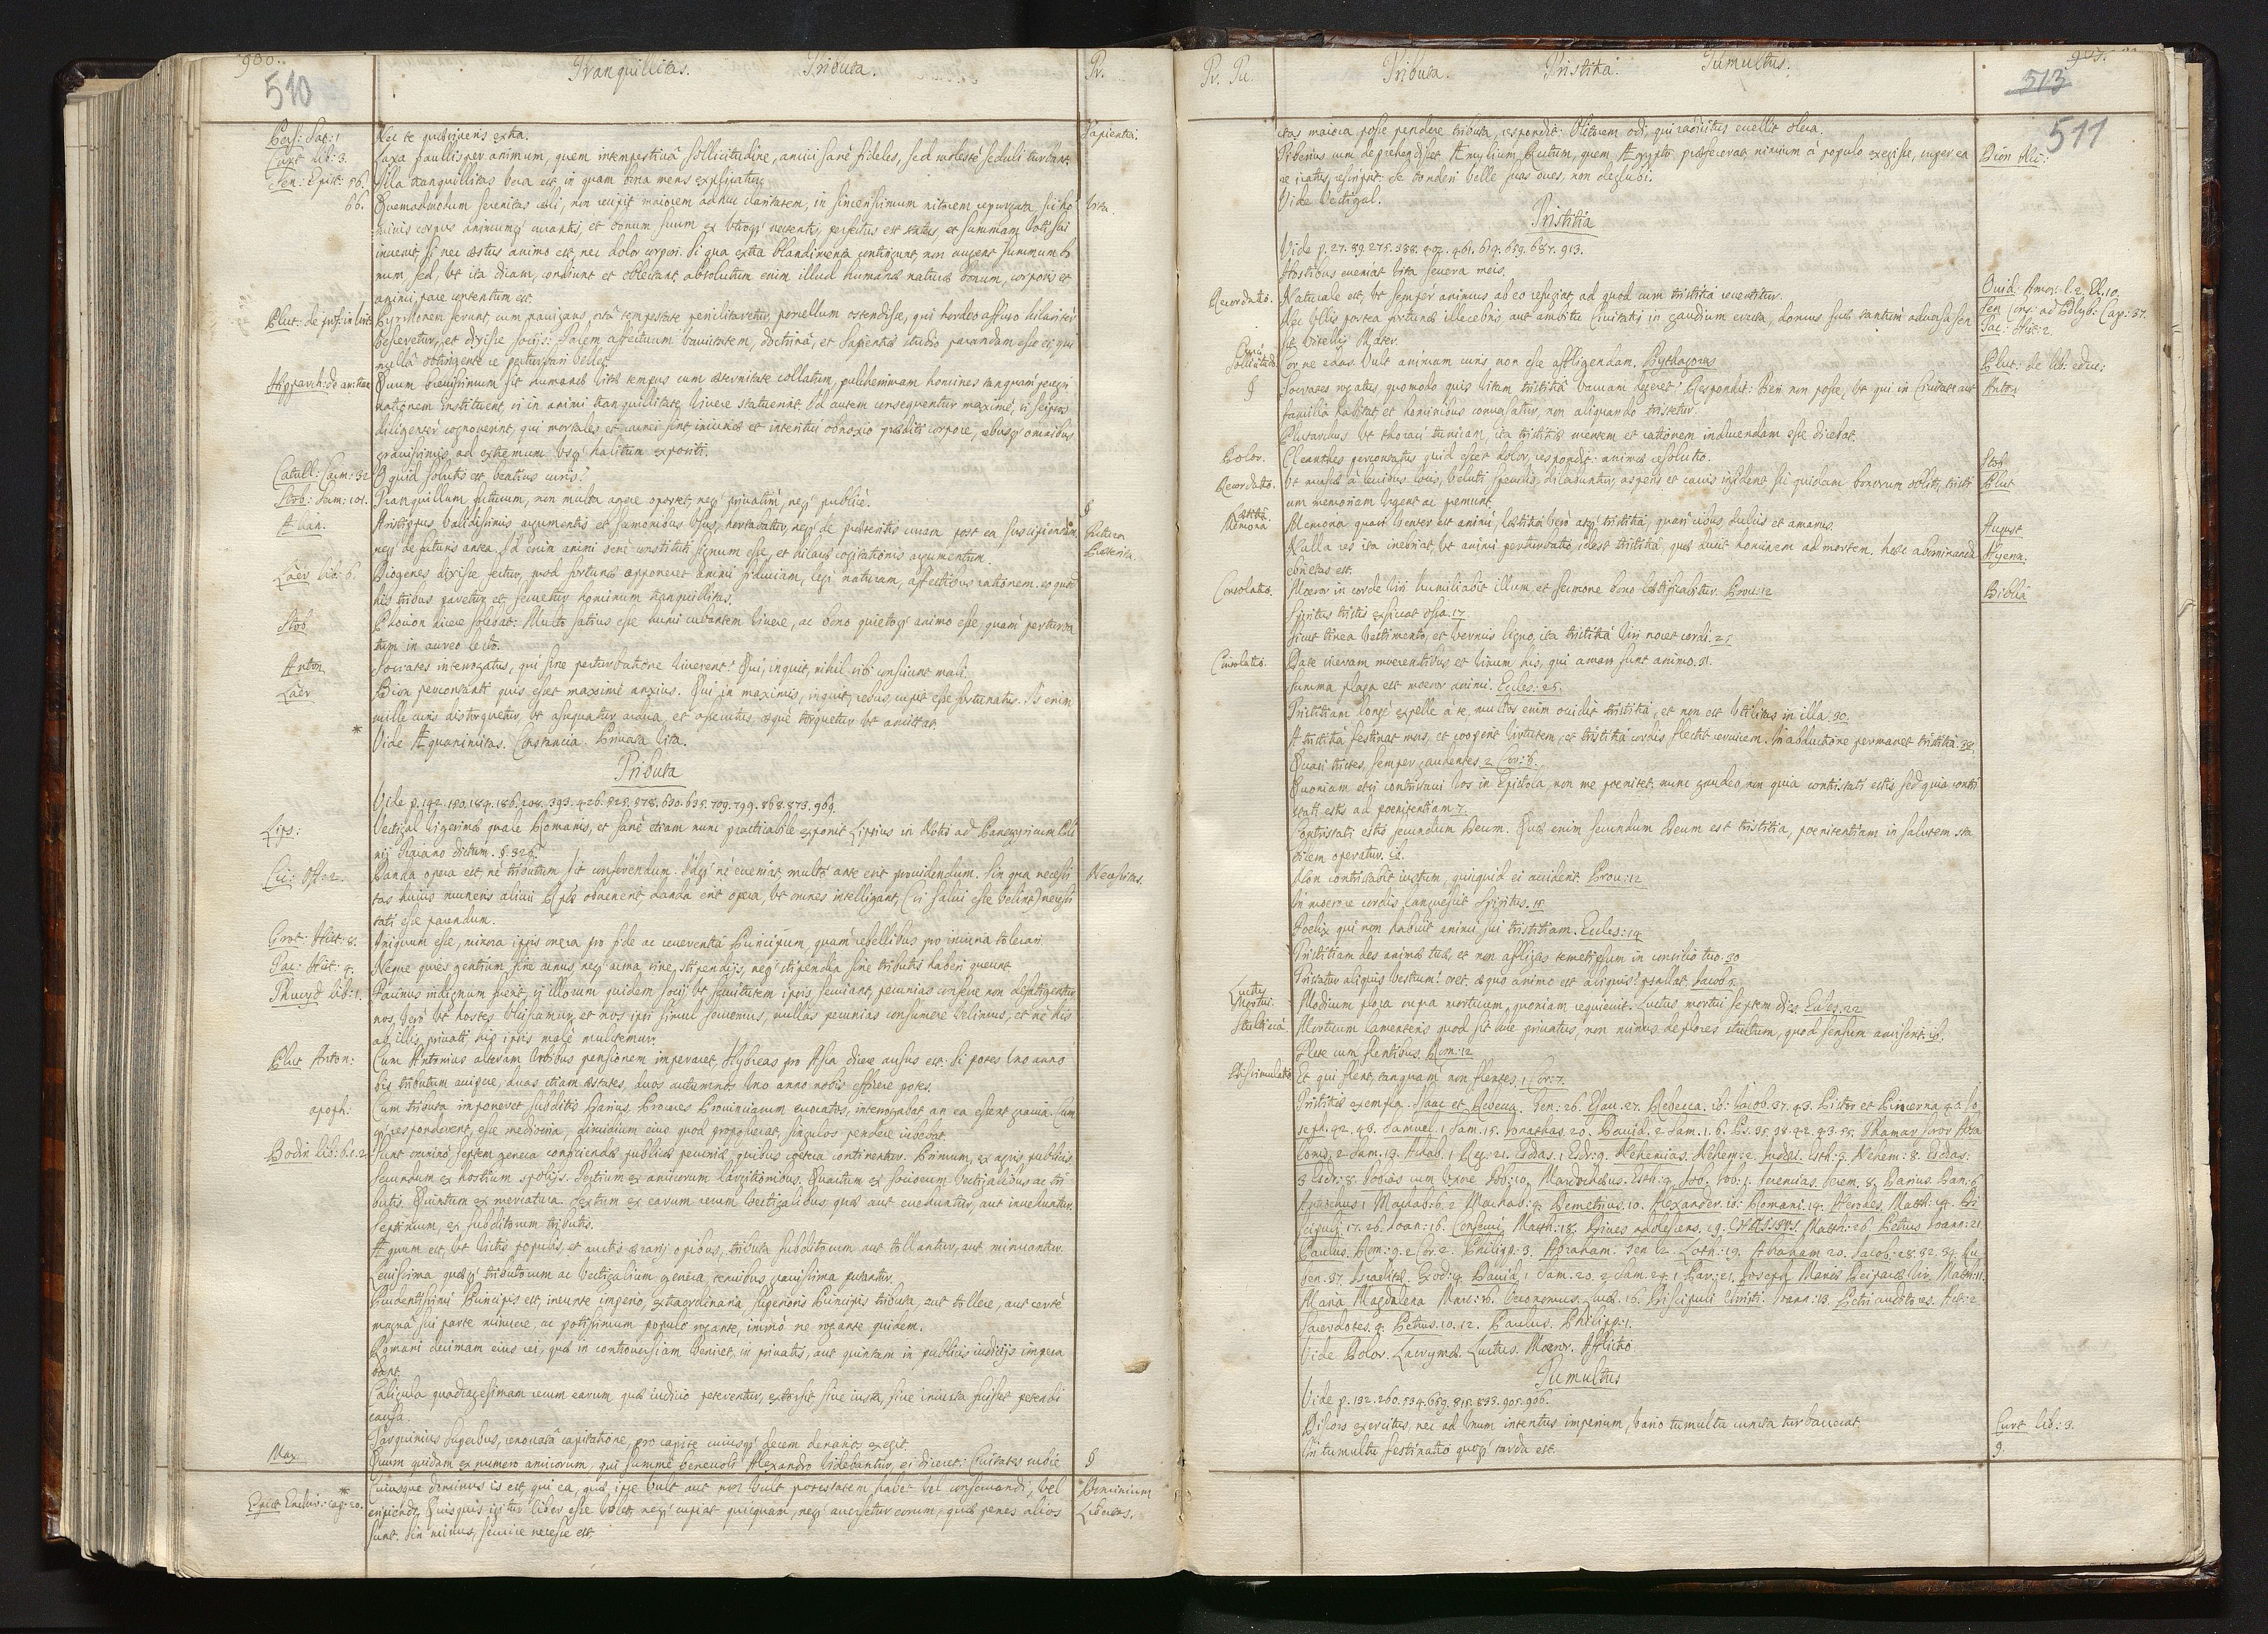 980.
510
Tranquillitas. Tributa.
Tr.
Pers: Sat: 1
Nec te quæsiveris extra.
Sapientia.
Curt lib: 3.
Laxa paullisper animum, quem intempestivâ sollicitudine, amici sanè fideles, sed molestè seduli turbant.
Sen: Epist: 56.
Illa tranquillitas vera est, in quam bona mens explicatur.
66.
Quemadmodum serenitas cœli, non recipit maiorem adhuc claritatem, in sincerissimum nitorem repurgata, sic ho
Vita.
minis corpus animumq́ curantis, et bonum suum ex utroq́ nectentis, perfectus est status, et summam voti sui
invenit, si nec æstus animo est, nec dolor corpori. Si qua extra blandimenta contingunt, non augent summum bo
num, sed, ut ita dicam, condiunt et oblectant, absolutum enim illud humanæ naturæ bonum, corporis et
animi, pace contentum est.
Plut: de prof: in virt:
Pyrrhonem ferunt, cum navigans, ortâ tempestate periclitaretur, porcellum ostendisse, qui hordeo affuso hilariter
vesceretur, et dixisse socijs: Talem affectuum vacuitatem, doctrinâ, et sapientiæ studio parandam esse ei, qui
nullâ obtingente re perturbari vellet.
Hipparch:
Quum brevissimum sit humanæ vitæ tempus cum æternitate collatum, pulcherrimam homines tanquam peregri
nationem instituent, si in animi tranquillitate vivere statuerint. Id autem consequentur maximè, si seipsos
diligenter cognoverint, qui mortales, et carnei sint, iniurijs et interitui obnoxio præditi corpore, rebusq́ omnibus
gravissimis ad extremum usq́ halitum expositi.
Catull: Carm: 32
O quid solutis est beatius curis?
Stob: Serm: 101.
Tranquillum futurum, non multa agere oportet, neq́ privatim, neq́ publicè.
§
Ælian.
Aristippus validissimis argumentis et sermonibus usus, hortabatur, neq́ de præteritis curam post ea suscipiendam,
Futura
neq́ de futuris antea. Id enim animi benè constituti signum esse, et hilaris cogitationis argumentum.
Præterita.
Laër lib: 6.
Diogenes dixisse fertur, quod fortunæ opponeret animi fiduciam, legi naturam, affectibus rationem. eo quod
his tribus paretur et servetur hominum tranquillitas.
Stob
Phocion dicere solebat: Multo satius esse humi cubantem vivere, ac bono quietoq́ animo esse, quam perturba
tum in aureo lecto.
Anton
Socrates interrogatus, qui sine perturbatione viverent? Qui, inquit, nihil sibi consciunt mali.
Laër
Bion percontanti quis esset maximè anxius. Qui in maximis, inquit, rebus, cupit esse fortunatus. Is enim
mille curis distorquetur, ut assequatur ardua, et assecutus, æquè torquetur ut amittat.
*
Vide Æquanimitas. Constantia. Privata vita.
Tributa
Vide p. 142. 150. 184. 186. 208. 393. 426. 525. 578. 630. 635. 709. 799. 868. 873. 969.
Lips:
Vectigal vigesimæ quale Romanis, et sanè etiam nunc practicabile exponit Lipsius in Notis ad Panegyricum Pli
nij Traiano dictum. p. 326.
Cic: Off 2.
Danda opera est, nè tributum sit conferendum. Idq́ nè eveniat, multò ante erit providendum. Sin qua necessi
Necessitas.
tas huius muneris alicui R(ei)p(ublic)æ obvenerit, danda erit opera, ut omnes intelligant, (si salvi esse velint) necessi
tati esse parendum.
Grot: Hist: 8.
Iniquum esse, minora ipsis onera pro fide ac reverentiâ Principum, quam rebellibus pro iniuria tolerari.
Tac: Hist: 4.
Neque quies gentium, sine armis, neq́ arma sine stipendijs, neq́ stipendia sine tributis haberi queunt
Thucyd lib: 1.
Facinus indignum fuerit, si illorum quidem socij, ut servitutem ipsis serviant, pecunias conferre non defatigentur
nos, verò ut hostes ulciscamur, et nos ipsi simul servemur, nullas pecunias consumere velimus, et nè his
ab illis privati his ipsis malè mulctemur.
Plut Anton:
Cum Antonius alteram Urbibus pensionem imperaret, Hybreas pro Asia dicere ausus est: Si potes uno anno
bis tributum accipere, duas etiam æstates, duos autumnos uno anno nobis efficere potes.
apoph:
Cum tributa imponeret subditis Darius, Proceres Provinciarum evocatos, interrogabat an ea essent gravia. Cum
q́ responderent, esse mediocria, dimidium eius quod proposuerat, singulos pendere iubebat.
Bodin lib: 6. c. 2
Sunt omninò septem genera conficiendæ publicæ pecuniæ, quibus cætera continentur. Primum, ex agris publicis.
Secundum ex hostium spolijs. Tertium ex amicorum largitionibus. Quartum ex sociorum vectigalibus ac tri
butis. Quintum ex mercatura. Sextum ex earum rerum vectigalibus, quæ aut evehuntur, aut invehuntur.
Septimum, ex subditorum tributis.
Æquum est, ut victis populis, et auctis ærarij opibus, tributa subditorum aut tollantur, aut minuantur.
Levissima quæq́ tributorum ac vectigalium genera, tenuibus gravissima putantur.
Prudentissimi Principis est, ineunte imperio, extraordinaria superioris Principis tributa, aut tollere, aut certè
magnâ sui parte minuere, ac potissimum populo rogante, immò ne rogante quidem.
Romani decimam eius rei, quæ in controversiam veniret, in privatis, aut quintam in publicis iudicijs impera
bant.
Caligula quadragesimam rerum earum, quæ iudicio peterentur, extorsit, sive iusta, sive iniusta fuisset petendi
causa.
Tarquinius superbus, renovatâ capitatione, pro capite cuiusq́ decem denarios exegit.
Max
Quum quidam ex numero amicorum, qui summè benevoli Alexandro videbantur, ei diceret: Civitates mod
§
*
Cuiusque dominus is est, qui ea, quæ, ipse vult aut non vult potestatem habet vel conservandi, vel
Dominium
Epict Enchir: cap: 20.
eripiendi. Quisquis igitur liber esse volet, neq́ cupiat quicquam, neq́ aversetur eorum, quæ penes alios
Libertas.
sunt. Sin minus, servire necesse est.
Tr. Tu.
Tributa. Tristitia. Tumultus.
513
511
itas maiora posse pendere tributa, respondit: Olitorem odi, qui radicitus evellit olera.
Tiberius cum deprehendisset Æmylium Rectum, quem Ægypto præfecerat, nimium à populo exegisse, super ea
Dion Nic:
re iratus, rescripsit: Se tonderi velle suas oves, non deglubi.
Vide Vectigal.
Tristitia
Vide p. 27. 89. 275. 388. 402. 461. 619. 659. 687. 913.
Hostibus eveniat vita severa meis.
Ovid: Amor: l. 2. El. 10.
Recordatio.
Naturale est, ut semper animus ab eo refugiat, ad quod cum tristitia revertitur.
Sen Cons: ad Polyb: Cap: 37.
Nec ullis postea fortunæ illecebris, aut ambitu Civitatis in gaudium evicta, domus suæ tantùm adversa sen
Tac: Hist: 2.
sit Vitellij Mater.
Cura
Sollicitudo
Cor ne edas. Vult animum curis non esse affligendam. Pythagoras
Plut: de lib: educ:
§
Socrates rogatus, quomodo quis vitam tristitiâ vacuam ageret? Respondit: Fieri non posse, ut qui in Civitate aut
Anton
familia habitat, et hominibus conversatur, non aliquando tristetur.
Plutarchus ut thoraci tunicam, ita tristitiæ mentem et rationem induendam esse dicebat.
Dolor.
Cleanthes percontatus quid esset dolor, respondit: animæ resolutio.
Stob
Recordatio.
Ut muscæ à levibus locis, veluti speculis, dilabuntur, asperis et cavis insident, sic quidam bonorum obliti, tristi
Plut
um memoriam urgent ac premunt.
Memoria.
Memoria quasi venter est animi, lætitia verò atq́ tristitia, quasi cibus dulcis et amarus.
August
Nulla res ita inebriat, ut animi perturbatio, idest tristitia, quæ ducit hominem ad mortem. hæc abominanda
Hyeron.
ebrietas est.
Consolatio.
Moeror in corde viri humiliabit illum, et sermone bono lætificabitur. Prov: 12
Biblia
Spiritus tristis exsiccat ossa. 17
Sicut tinea vestimento, et vermis ligno, ita tristitia viri nocet cordi. 25
Consolatio.
Date siceram moerentibus et vinum his, qui amaro sunt animo. 31.
Summa plaga est moeror animi. Eccles: 25.
Tristitiam longè expelle à te, multos enim occidit tristitia, et non est utilitas in illa. 30.
A tristitia festinat mors, et cooperit virtutem, et tristitia cordis flectit cervicem. In abductione permanet tristitia. 38
Quasi tristes, semper gaudentes. 2 Cor: 6.
Quoniam etsi contristavi vos in Epistola non me poenitet, nunc gaudeo, non quia contristati estis sed quia contri
stati estis ad poenitentiam. 7.
Contristati estis secundum Deum. Quæ enim secundum Deum est tristitia, poenitentiam in salutem sta
bilem operatur. ib.
Non contristabit iustum, quicquid ei acciderit Prov: 12
In moerore cordis languescit spiritus. 15
Foelix qui non habuit animi sui tristitiam. Eccles: 14
Tristitiam des animæ tuæ, et non affligas temetipsum in consilio tuo. 30
Tristatur aliquis vestrum? oret. æquo animo est aliquis? psallat. Jacob 5.
Luctus
Mortui.
Modicum plora supra mortuum, quoniam requievit. Luctus mortui septem dies. Eccles. 22
Stultitia.
Mortuum lamenteris quod sit luce privatus, non minus deflores stultum, quod sensum amiserit. ib.
Flete cum flentibus. Rom: 12
Dissimulatio
Et qui flent, tanquam non flentes. 1 Cor: 7.
Tristitiæ exempla. Isaac et Rebecca. Gen: 26. Esau. 27. Rebecca. ib: Jacob. 37. 43. Pistor et Pincerna 40. Jo
seph. 42. 43. Samuel. 1 Sam. 15. Jonathas 20. David. 2 Sam. 1. 6. Ps. 35. 38. 42. 43. 55. Thamar soror Absa
lonis. 2 Sam. 13. Achab. 1 Reg. 21. Esdras. 1 Esdr: 9. Nehemias. Nehem: 2. Judæi. Esth: 3. Nehem: 8. Esdras.
3 Esdr: 8. Tobias cum Uxore Tob: 10. Mardochæus. Esth: 4. Job. Job: 1. Jeremias. Jerem. 8. Darius. Dan: 6
Antiochus 1 Machab: 6. 2 Machab: 4. Demetrius. 10. Alexander. ib: Romani. 14. Herodes. Matth: 14. Di
scipuli. 17. 26. Joan: 16. Conservi. Matth: 18. Dives adolescens. 19. CHRISTUS Matth: 26 Petrus Joann: 21
Paulus. Rom: 9. 2 Cor. 2. Philipp: 3. Abraham. Gen 12. Loth: 19. Abraham 20. Jacob: 28. 32. 34. Ru
ben. 37. Israelitæ. Exod: 4. David. 1 Sam. 20. 2 Sam. 24. 1 Par: 21. Joseph Mariæ Deiparæ Vir. Matth: 1.
Maria Magdalena Marc: 16. Oeconomus. Luc. 16. Discipuli Christi. Joann: 13. Petri auditores. Act: 2
Sacerdotes. 4. Petrus. 10. 12. Paulus. Philipp: 1.
Vide Dolor. Lacrymæ. Luctus. Moeror. Afflictio
Tumultus
Vide p. 132. 260. 534. 659. 815. 833. 905. 906.
Discors exercitus, nec ad unum intentus imperium, vario tumultu cuncta turbaverat.
Curt lib: 3.
In tumultu festinatio quoq́ tarda est.
9.